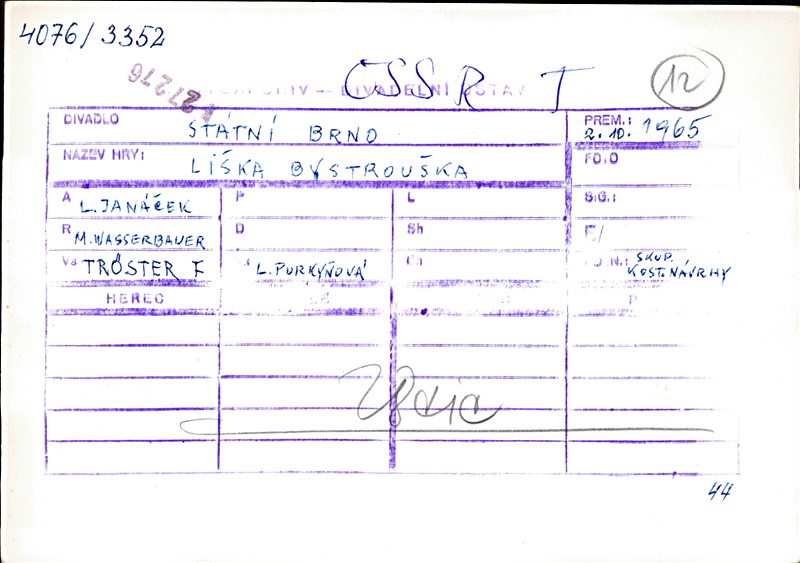 4076/3352
ČSSR T
12
1 27276
FOTOARCHIV – DIVADELNÍ ÚSTAV
DIVADLO STÁTNÍ BRNO
PREM.: 2.10.1965
NÁZEV HRY: LIŠKA BYSTROUŠKA
FOTO
A L. JANÁČEK P L SIG.:
R M. WASSERBAUER D Sh F/
Vs TRÖSTER F L. PURKYŇOVÁ Ch POZN.: SKUP.
KOST. NÁVRHY
HEREC
44